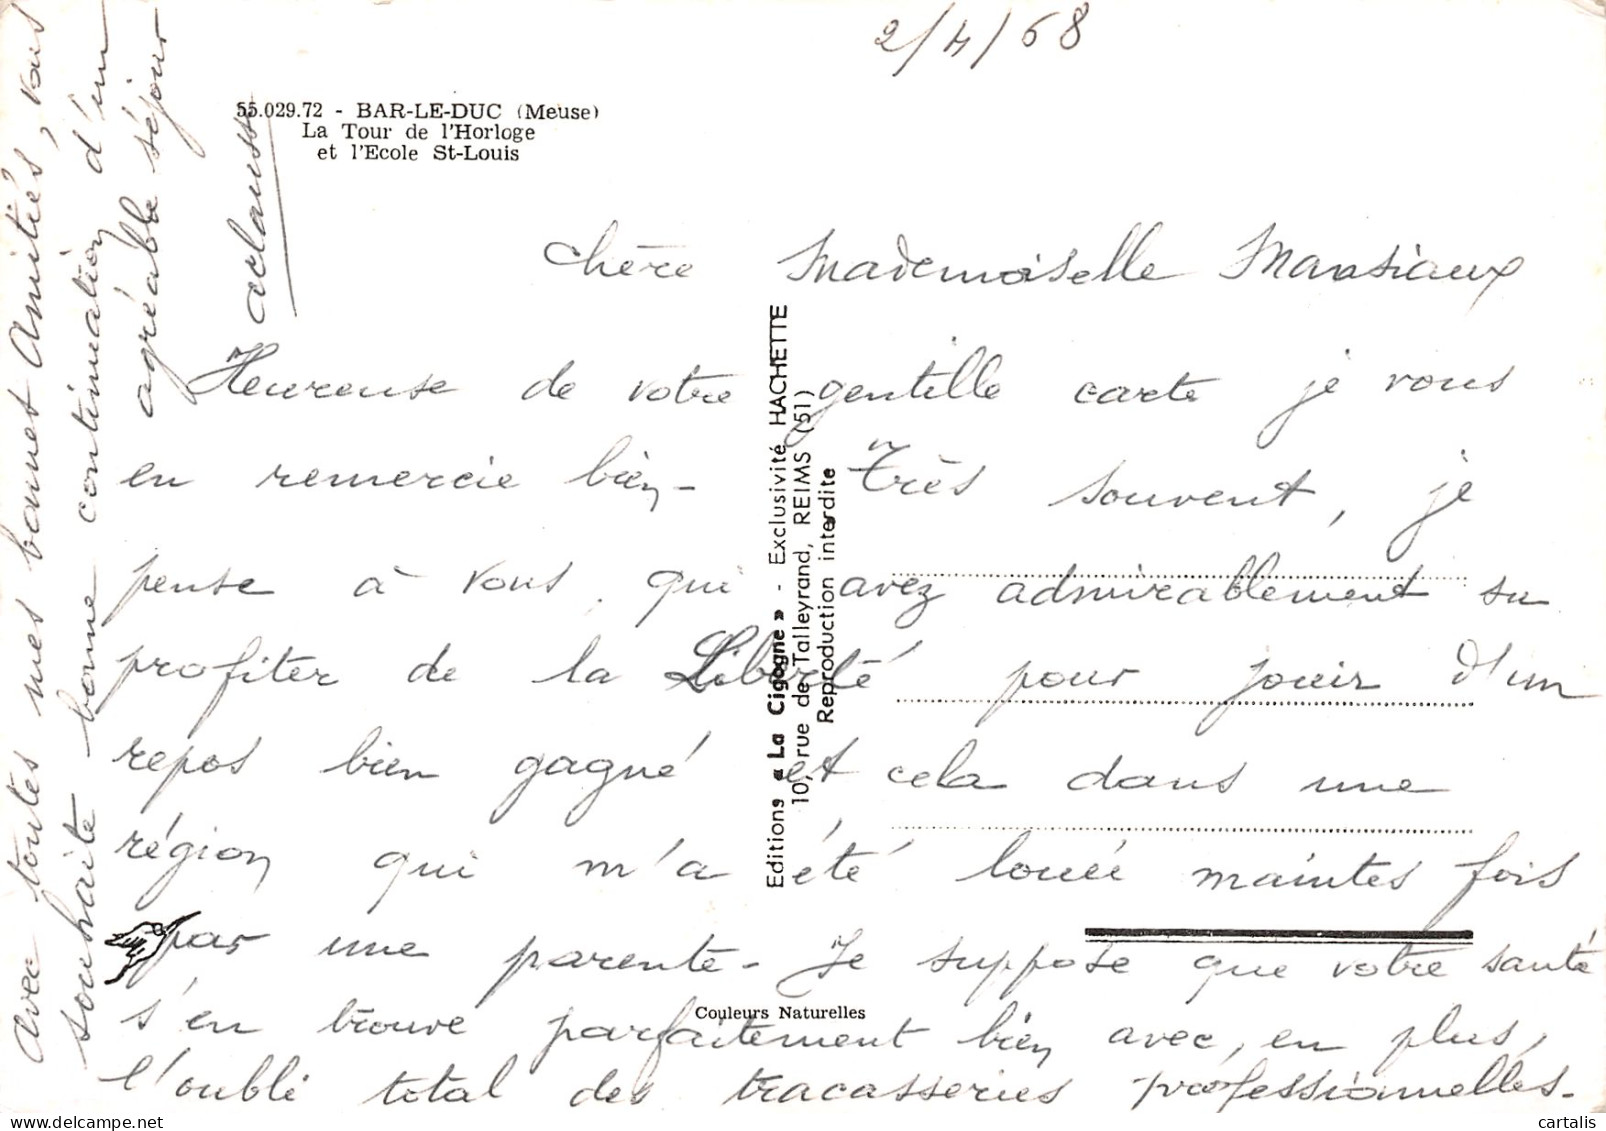 2/4/68
55.029.72 - BAR-LE-DUC (Meuse)
La Tour de l'Horloge
et l'Ecole St-Louis
Chère Mademoiselle Mansiaux
Heureuse de votre gentille carte je vous
en remercie bien - Très souvent, je
pense à vous, qui avez admirablement su
profiter de la Liberté pour jouir d'un
repos bien gagné et cela dans une
région qui m'a été louée maintes fois
par une parente - Je suppose que votre santé
s'en trouve parfaitement bien avec, en plus,
l'oubli total des tracasseries professionnelles.
Avec toutes mes bonnes Amitiés, vous
souhaite bonne continuation d'un
agréable séjour
Editions « La Cigogne » - Exclusivité HACHETTE
10, rue de Talleyrand, REIMS (51)
Reproduction interdite
Couleurs Naturelles
cartalis